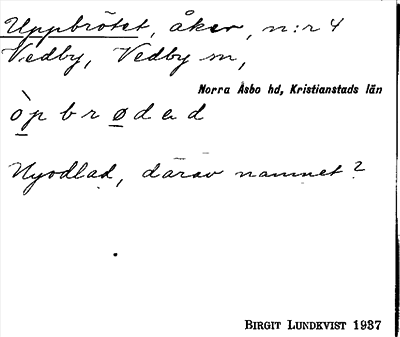 Uppbrötet, åker, n:r 4
Vedby, Vedby sn,
Norra Åsbo hd, Kristianstads län
ò̱p b r ø̱ d e d
Nyodlad, därav namnet?
BIRGIT LUNDKVIST 1937